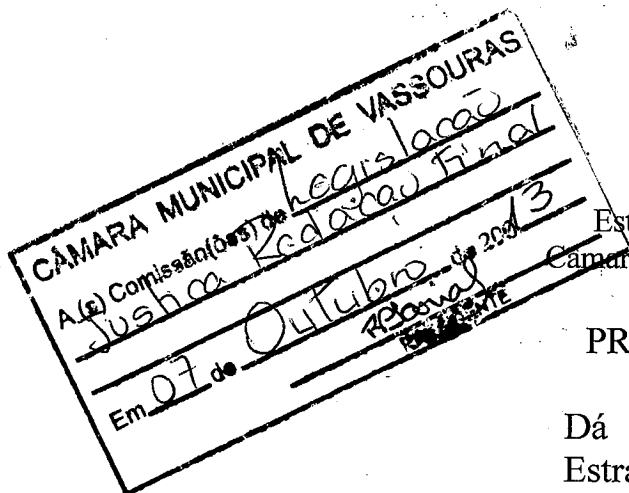 CÂMARA MUNICIPAL DE VASSOURAS
A (s) Comissão(ões) de Legislacao
Justica Redacao Final
Em 07 de Outubro de 2013
PRESIDENTE
Est
Câmar
PR
Dá
Estra